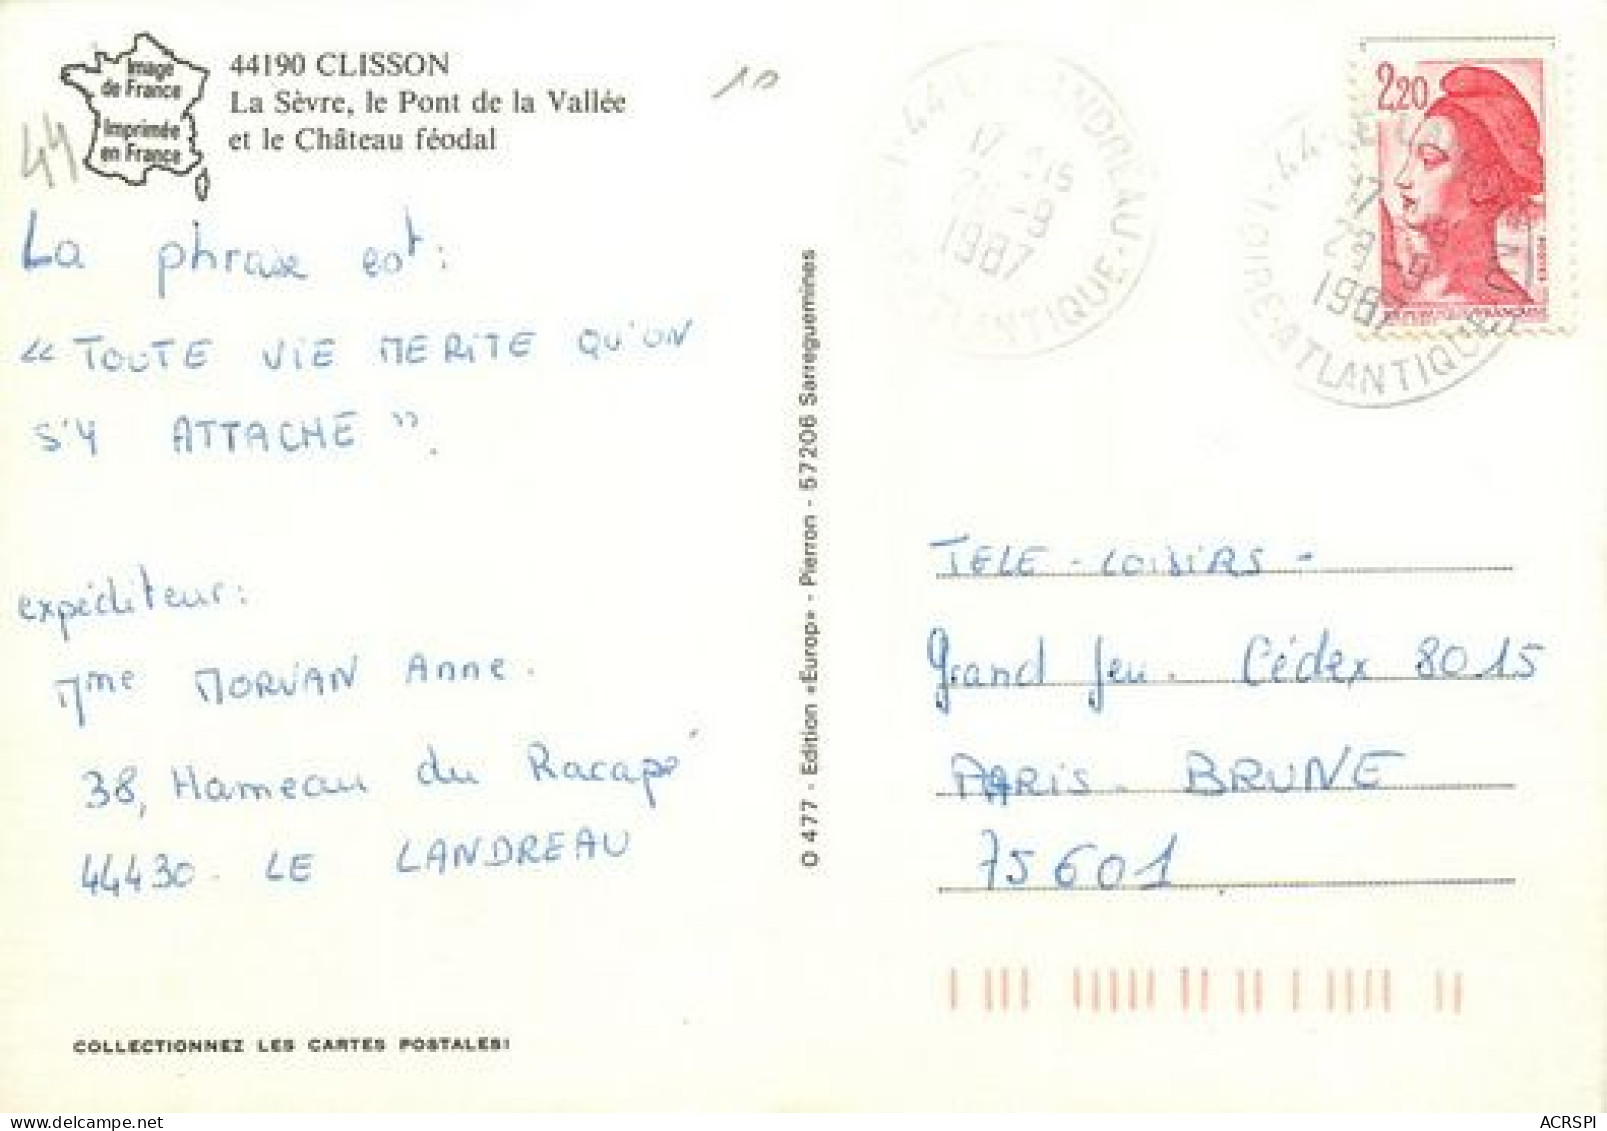 Image
de France
Imprimée
en France
44190 CLISSON
La Sèvre, le Pont de la Vallée
et le Château féodal
44
10
La phrase est :
« TOUTE VIE MERITE QU'ON
S'Y ATTACHE ».
expéditeur :
Mme MORVAN Anne.
38, Hameau du Racapé
44430. LE LANDREAU
COLLECTIONNEZ LES CARTES POSTALES!
O 477 - Edition «Europ» - Pierron - 57206 Sarreguemines
44 LANDREAU
17
1987
ATLANTIQUE
2,20
44
LOIRE-ATLANTIQUE
17
29 -9
1987
TELE - LOISIRS -
Grand Jeu. Cédex 8015
PARIS. BRUNE
75601
ACRSPI